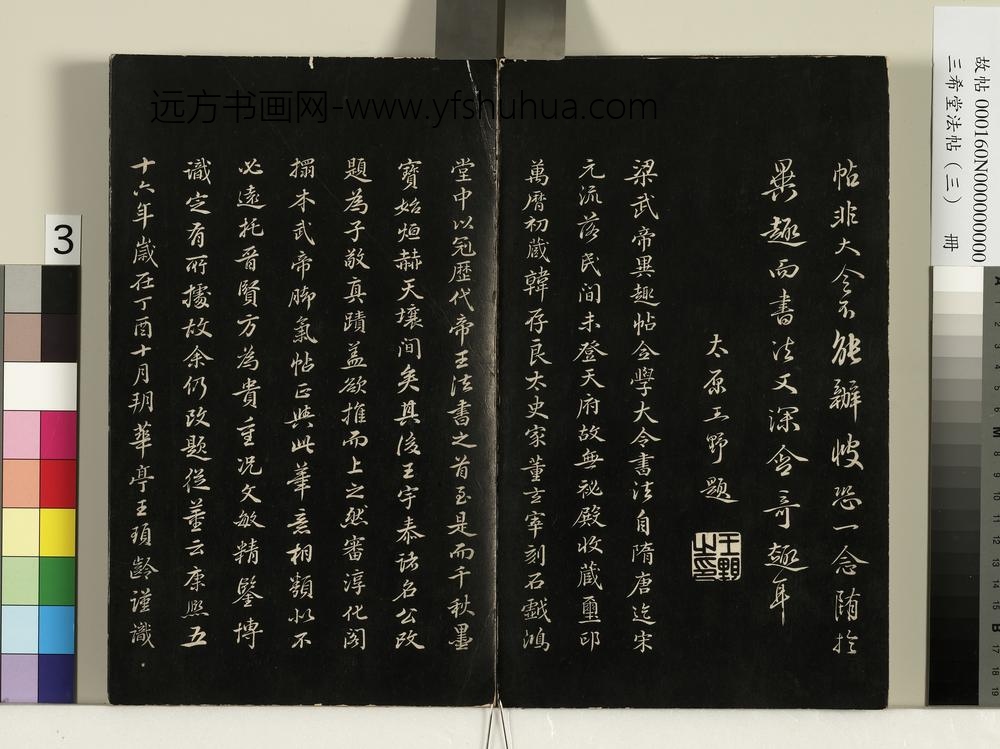 帖非大令不能辦恐一念隨於
異趣而書法又深含奇趣耳
太原王野題
王野之印
梁武帝異趣帖全學大令書法自隋唐迄宋
元流落民間未登天府故無祕殿收藏璽印
萬曆初藏韓存良太史家董玄宰刻石戲鴻
堂中以冠歷代帝王法書之首至是而千秋墨
寶始烜赫天壤間矣其後王宇泰諸名公改
題為子敬真蹟蓋欲推而上之然審淳化閣
搨本武帝腳氣帖正與此筆意相類似不
必遠托晉賢方為貴重況文敏精鑒博
識定有所據故余仍改題從董云康熙五
十六年歲在丁酉十月朔華亭王頊齡謹識
远方书画网-www.yfshuhua.com
故帖 000160N000000000
三希堂法帖（三） 冊
3